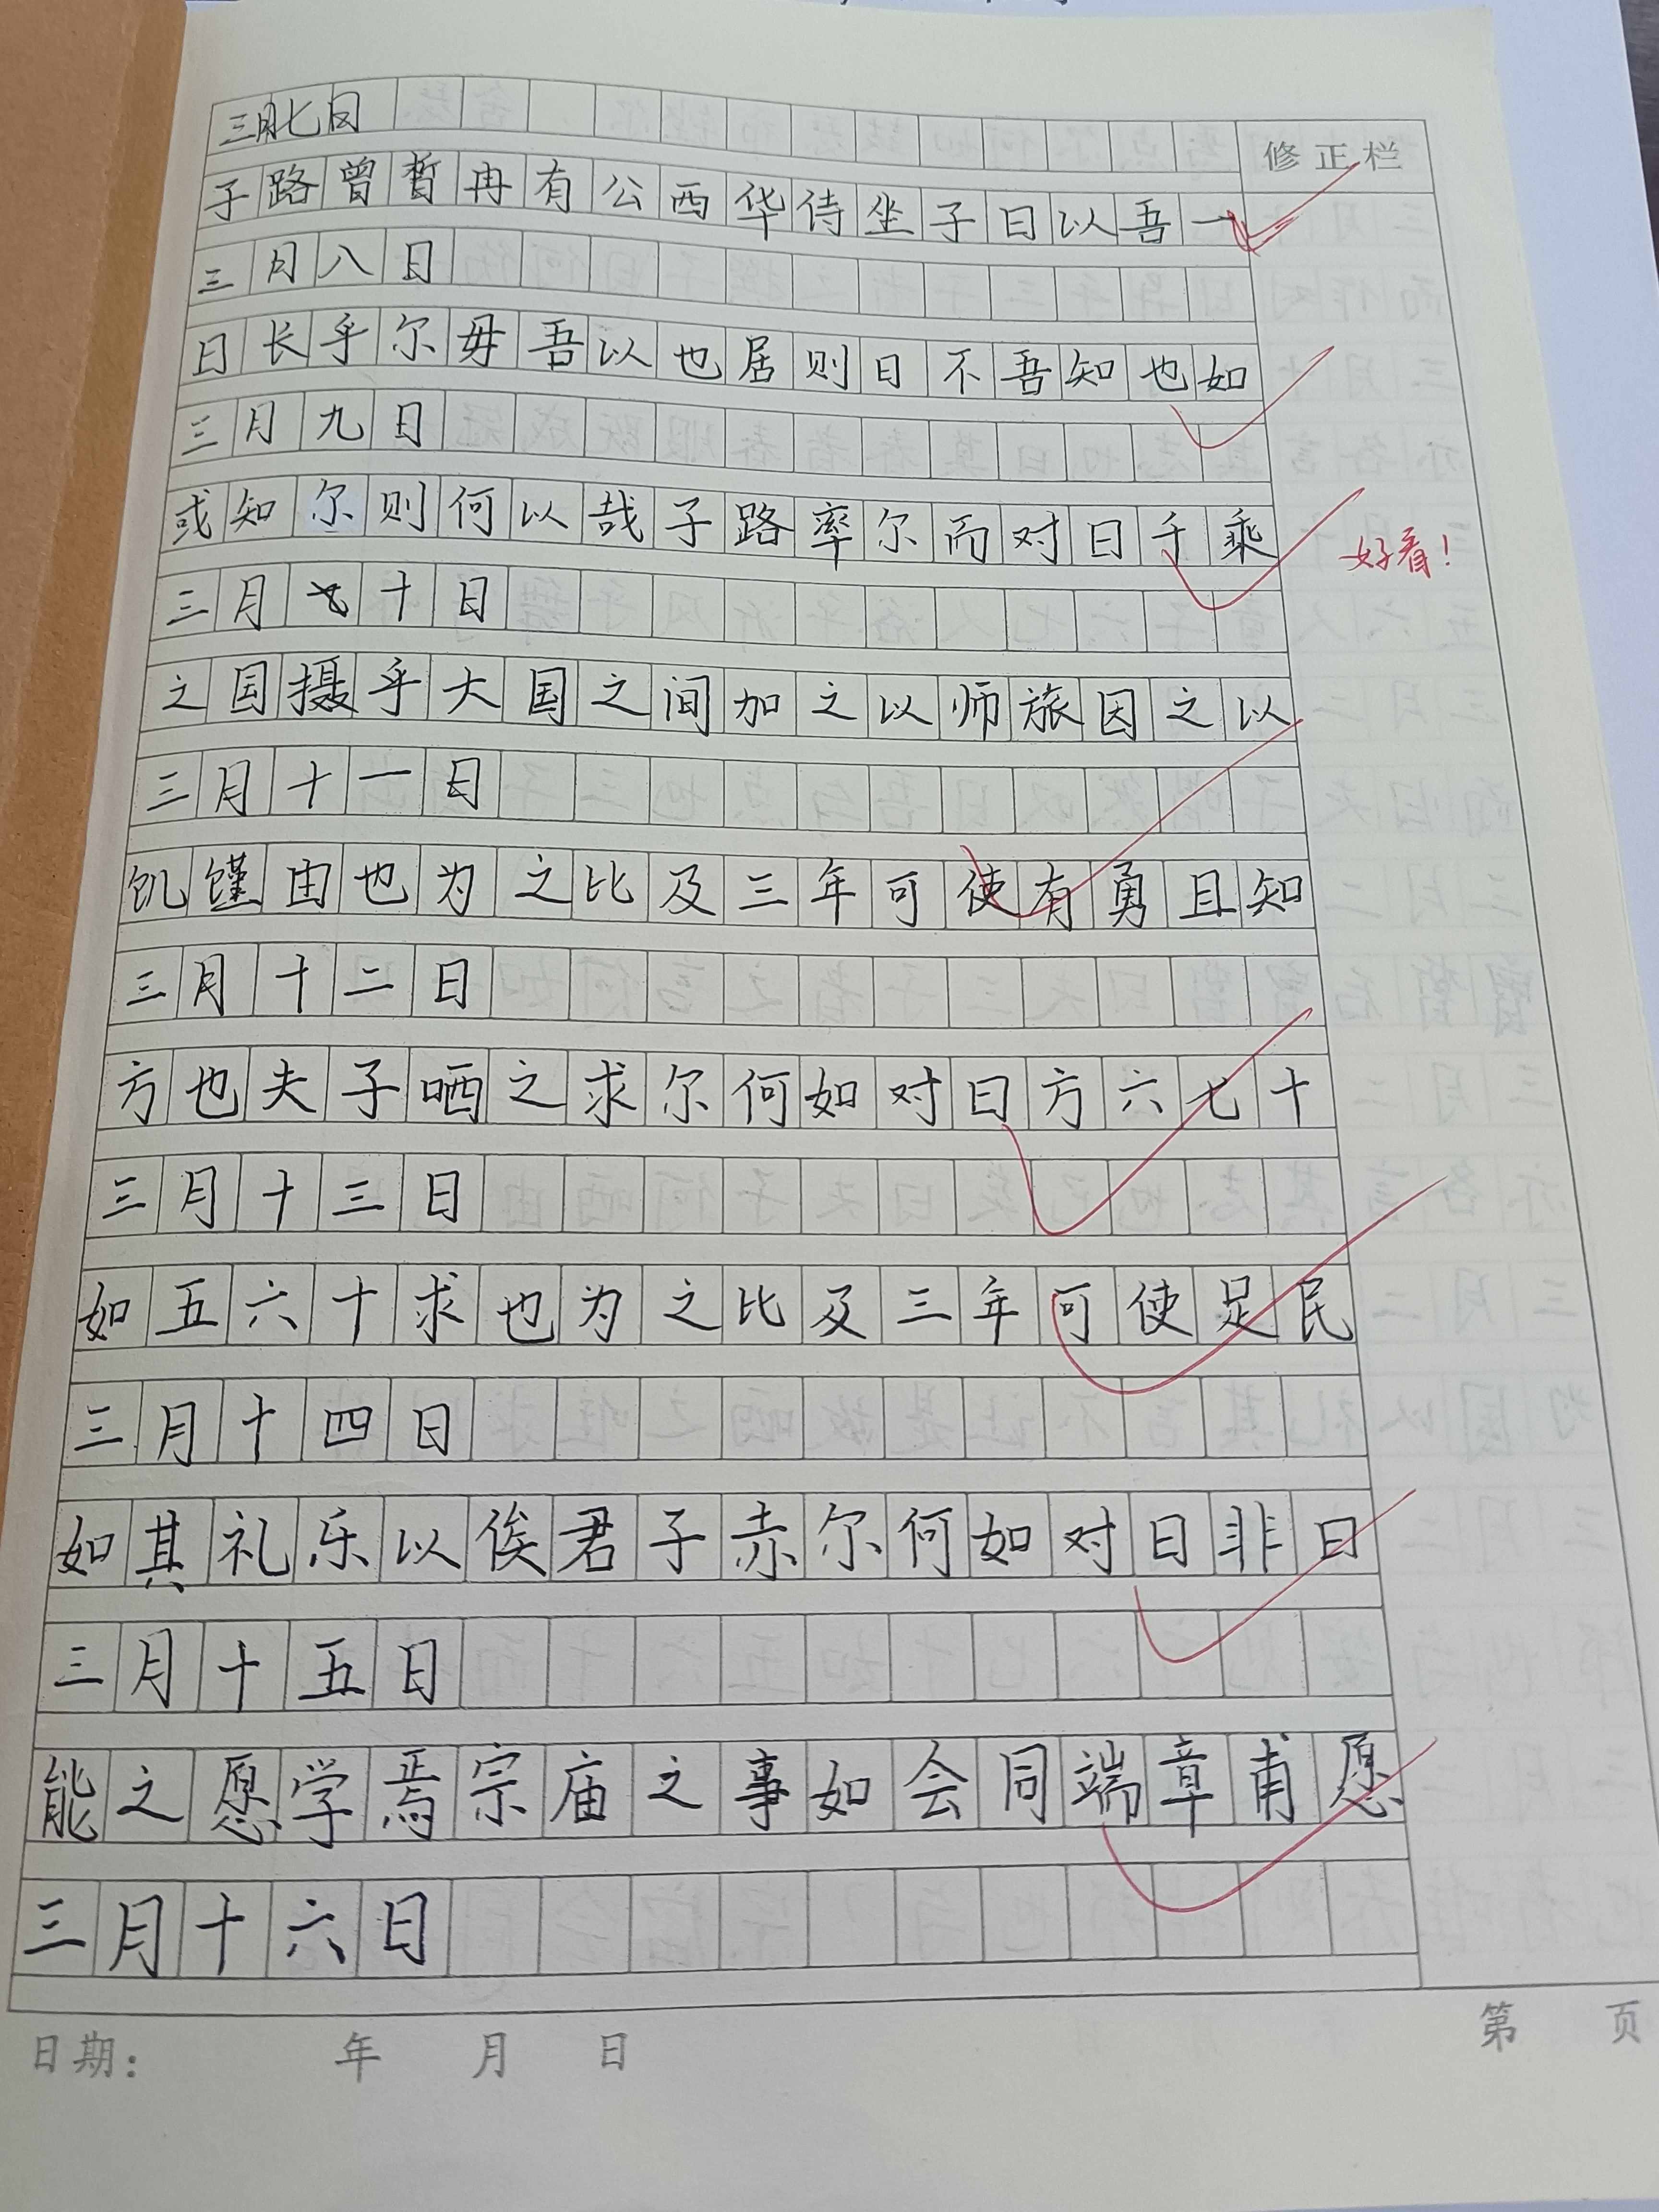 三月七日
修正栏
子路曾皙冉有公西华侍坐子曰以吾一
三月八日
日长乎尔毋吾以也居则曰不吾知也如
三月九日
或知尔则何以哉子路率尔而对曰千乘
好看!
三月十日
之国摄乎大国之间加之以师旅因之以
三月十一日
饥馑由也为之比及三年可使有勇且知
三月十二日
方也夫子哂之求尔何如对曰方六七十
三月十三日
如五六十求也为之比及三年可使足民
三月十四日
如其礼乐以俟君子赤尔何如对曰非曰
三月十五日
能之愿学焉宗庙之事如会同端章甫愿
三月十六日
日期: 年 月 日
第 页